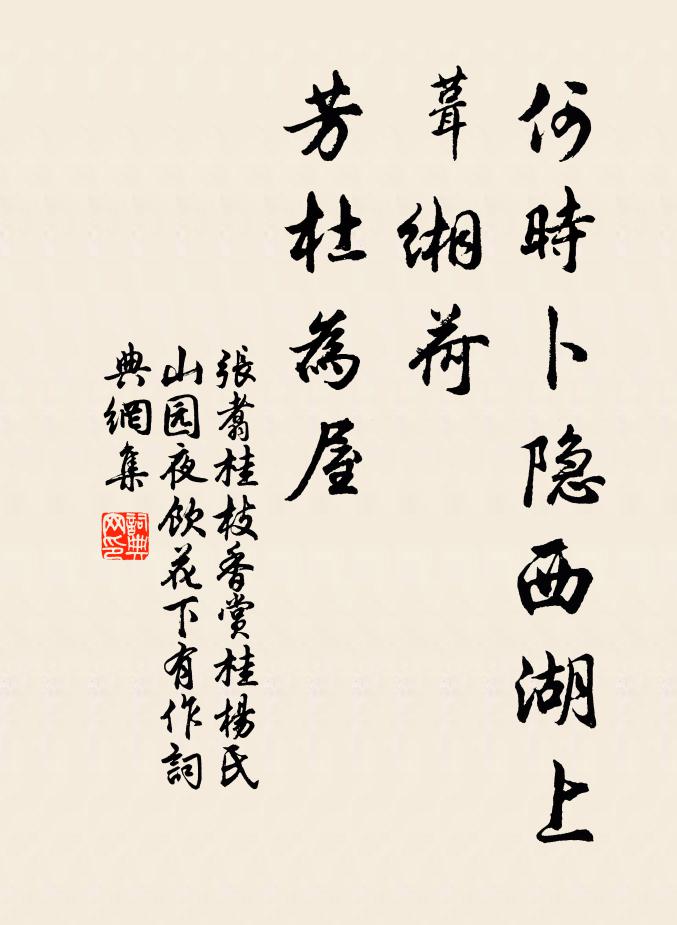 何時卜隐西湖上
葺缃荷
芳杜為屋
張翥桂枝香赏桂楊氏
山园夜飲花下有作詞
典網集
詞典
网印